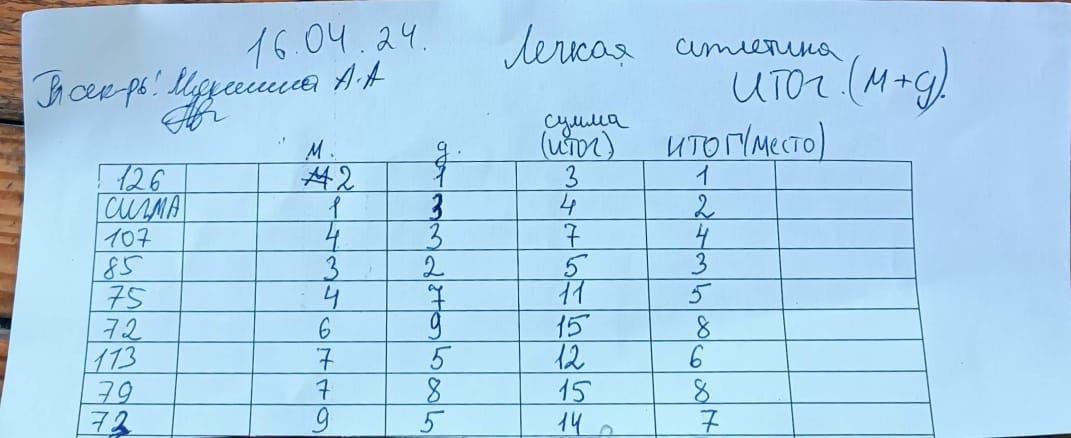 16.04.24. Легкая атлетика
Гл сек-рь! А.А ИТОГ.(м+д).
сумма
м. д. (итог) ИТОГ(место)
126 2 1 3 1
СИГМА 1 3 4 2
107 4 3 7 4
85 3 2 5 3
75 4 7 11 5
72 6 9 15 8
113 7 5 12 6
79 7 8 15 8
73 9 5 14 7